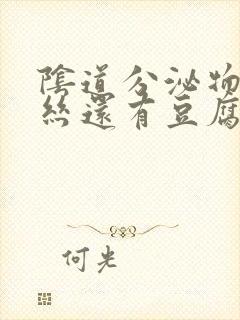 陰道分泌物
絲還有豆腐
何光